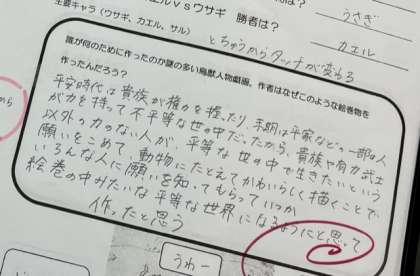 主要キャラ(ウサギ、カエル、サル)
ルvsウサギ 勝者は?
は?
うさぎ
カエル
とちゅうからタッチが変わる
誰が何のために作ったのか謎の多い鳥獣人物戯画。作者はなぜこのような絵巻物を
作ったんだろう?
平安時代は貴族が権力を握ったり、末期は平家などの一部の人
が力を持って不平等な世の中だったから、貴族や有力武士
以外の力のない人が、平等な世の中で生きたいという
願いをこめて、動物にたとえてかわいらしく描くことで
いろんな人に願いを知ってもらっていつか
絵巻の中みたいな平等な世界になるようにと思って
作ったと思う
から
うわー